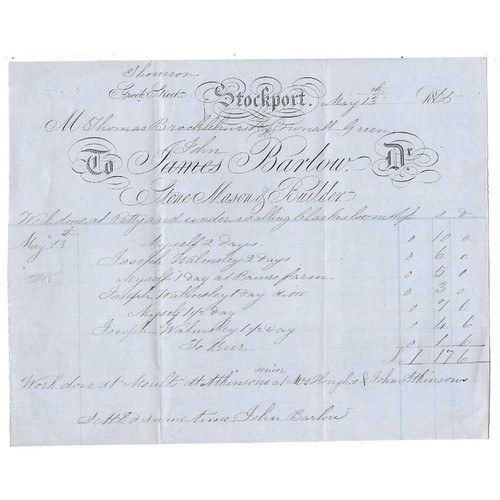 Thomson
Street
Stockport. May 13th 1865
Mr Thomas Brocklehurst Pownall Green
John
To James Barlow. Dr
Stone Mason & Builder.
Work done at and under walling £ s d
May 13th
Myself 2 Days 0 10 0
Joseph Walmsley 2 days 0 6 0
Myself 1 Day at Bains farm 0 5 0
Joseph Walmsley 1 Day ditto 0 3 0
Myself 1 1/2 Day 0 7 6
Joseph Walmsley 1 1/2 Day 0 4 6
To Beer 0 1 6
£ 1 17 6
senior
Work done at at Atkinsons at Mrs & John Atkinsons
same time John Barlow